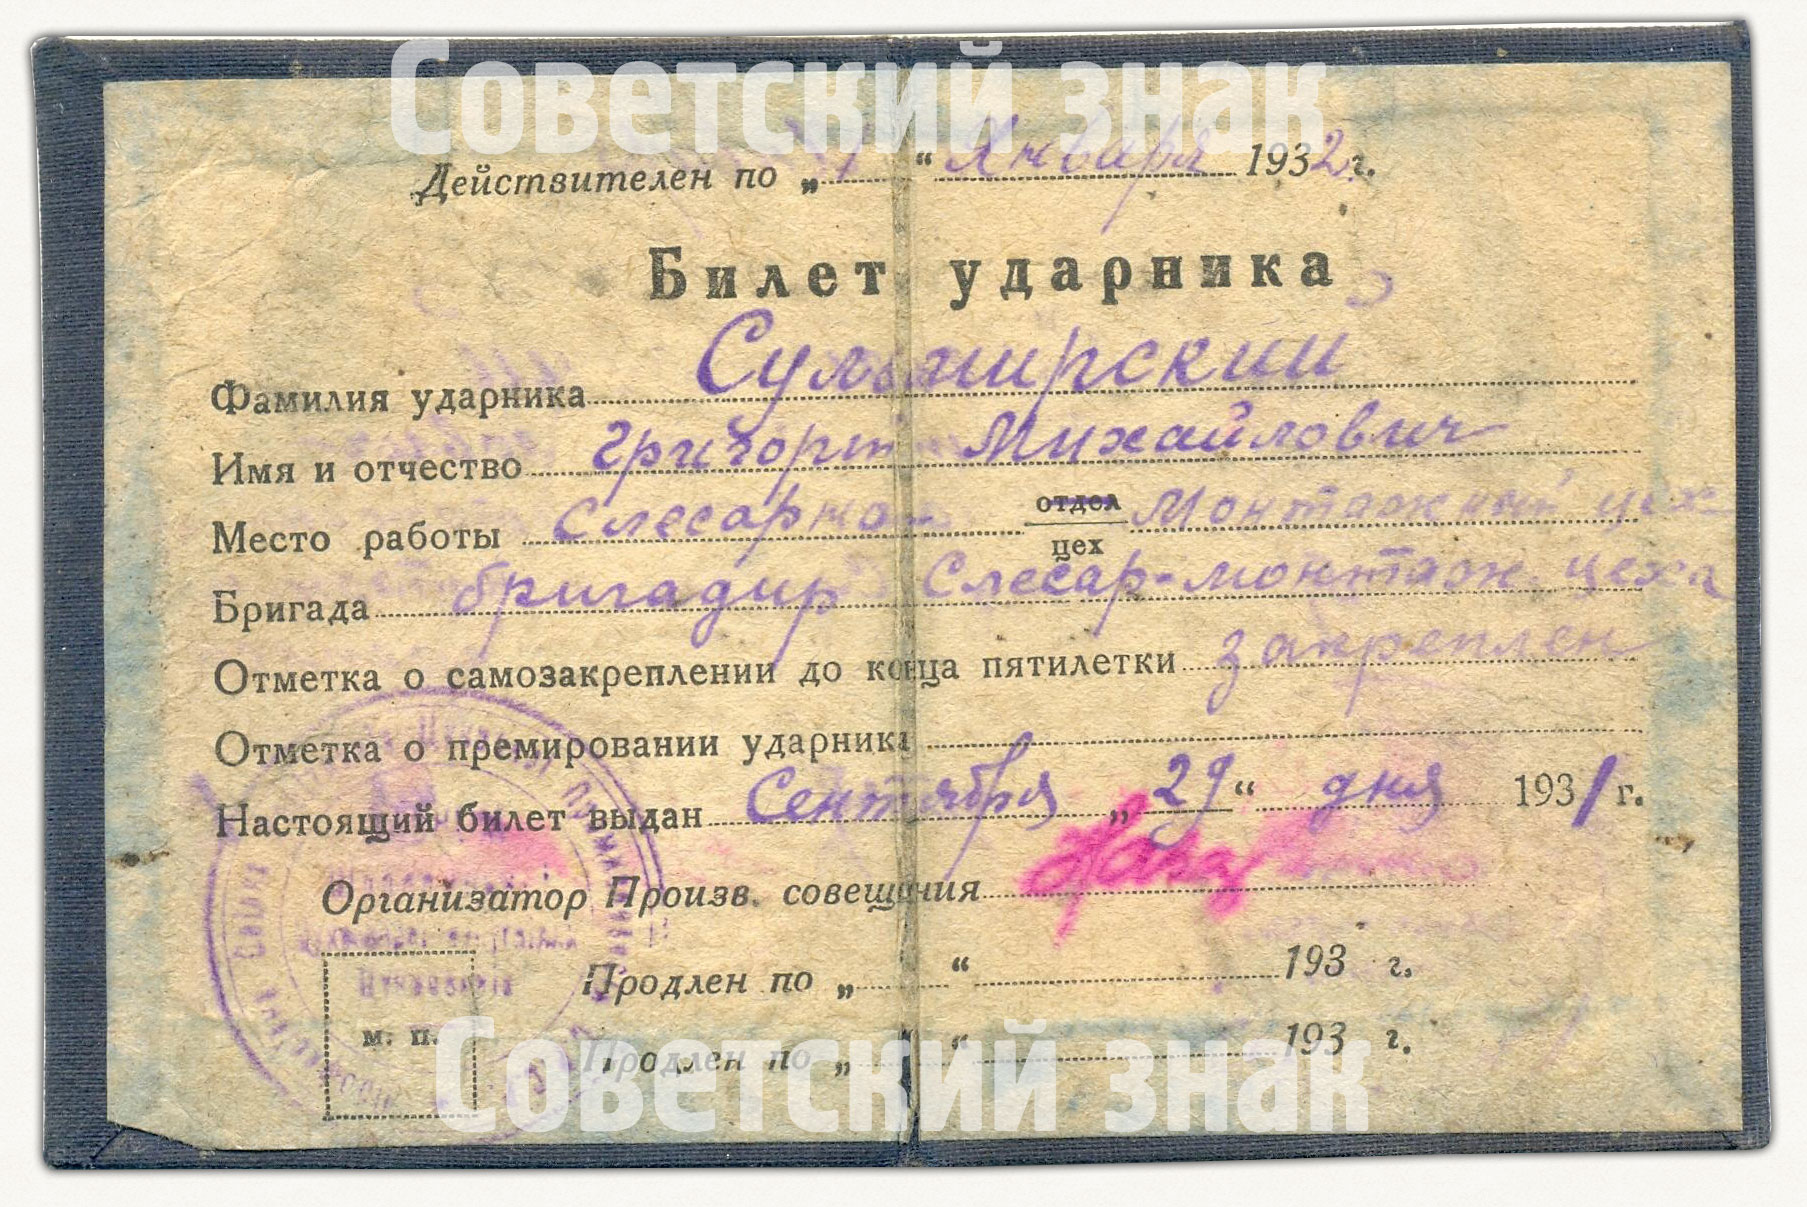 Советский знак
Действителен по „ 1 “ Января 1932 г.
Билет ударника
Фамилия ударника
Имя и отчество Григорий Михайлович
Место работы Слесарно- отдел цех Монтажный цех
Бригада бригадир Слесар-монтаж. цеха
Отметка о самозакреплении до конца пятилетки закреплен
Отметка о премировании ударника
Настоящий билет выдан Сентября „ 29 “ дня 1931 г.
Организатор Произв. совещания
Продлен по „ “ 193 г.
м. п.
Продлен по „ “ 193 г.
Советский знак